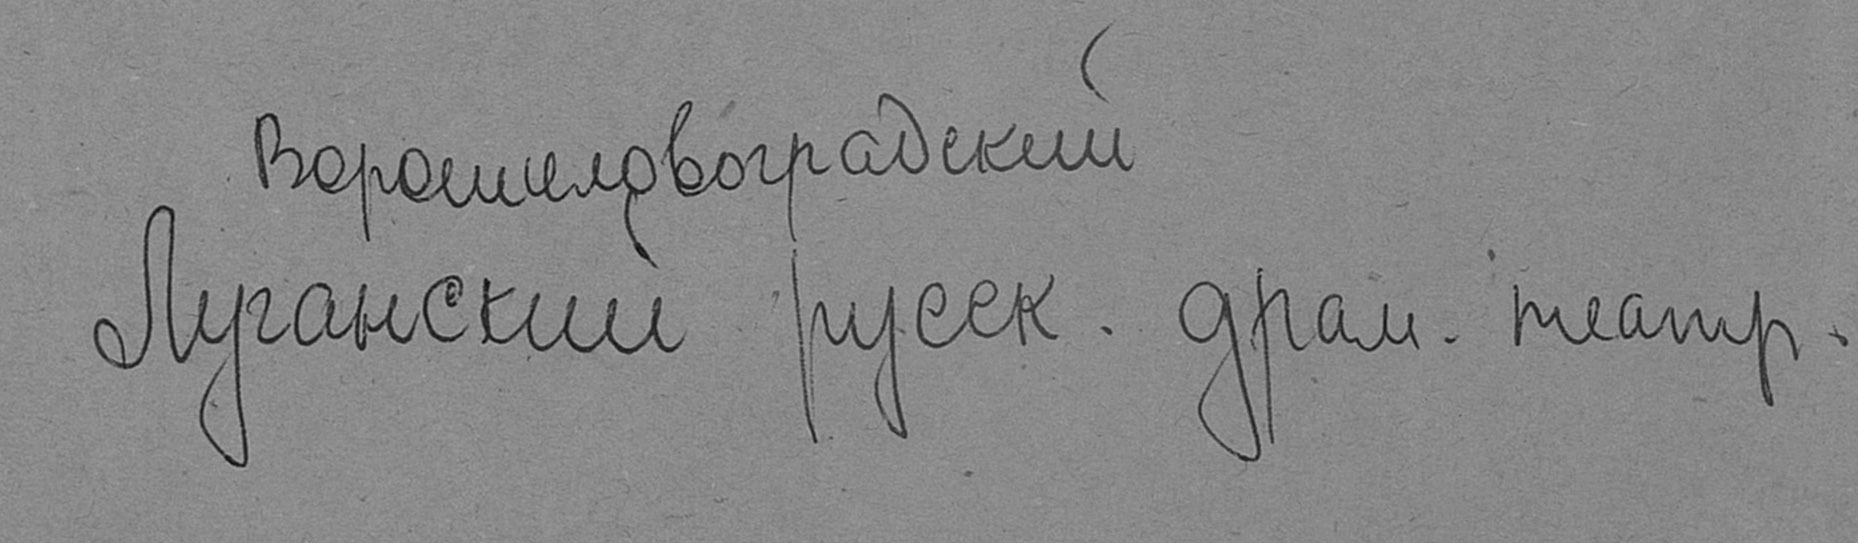 Ворошиловоградский
Луганский русск. драм. театр.